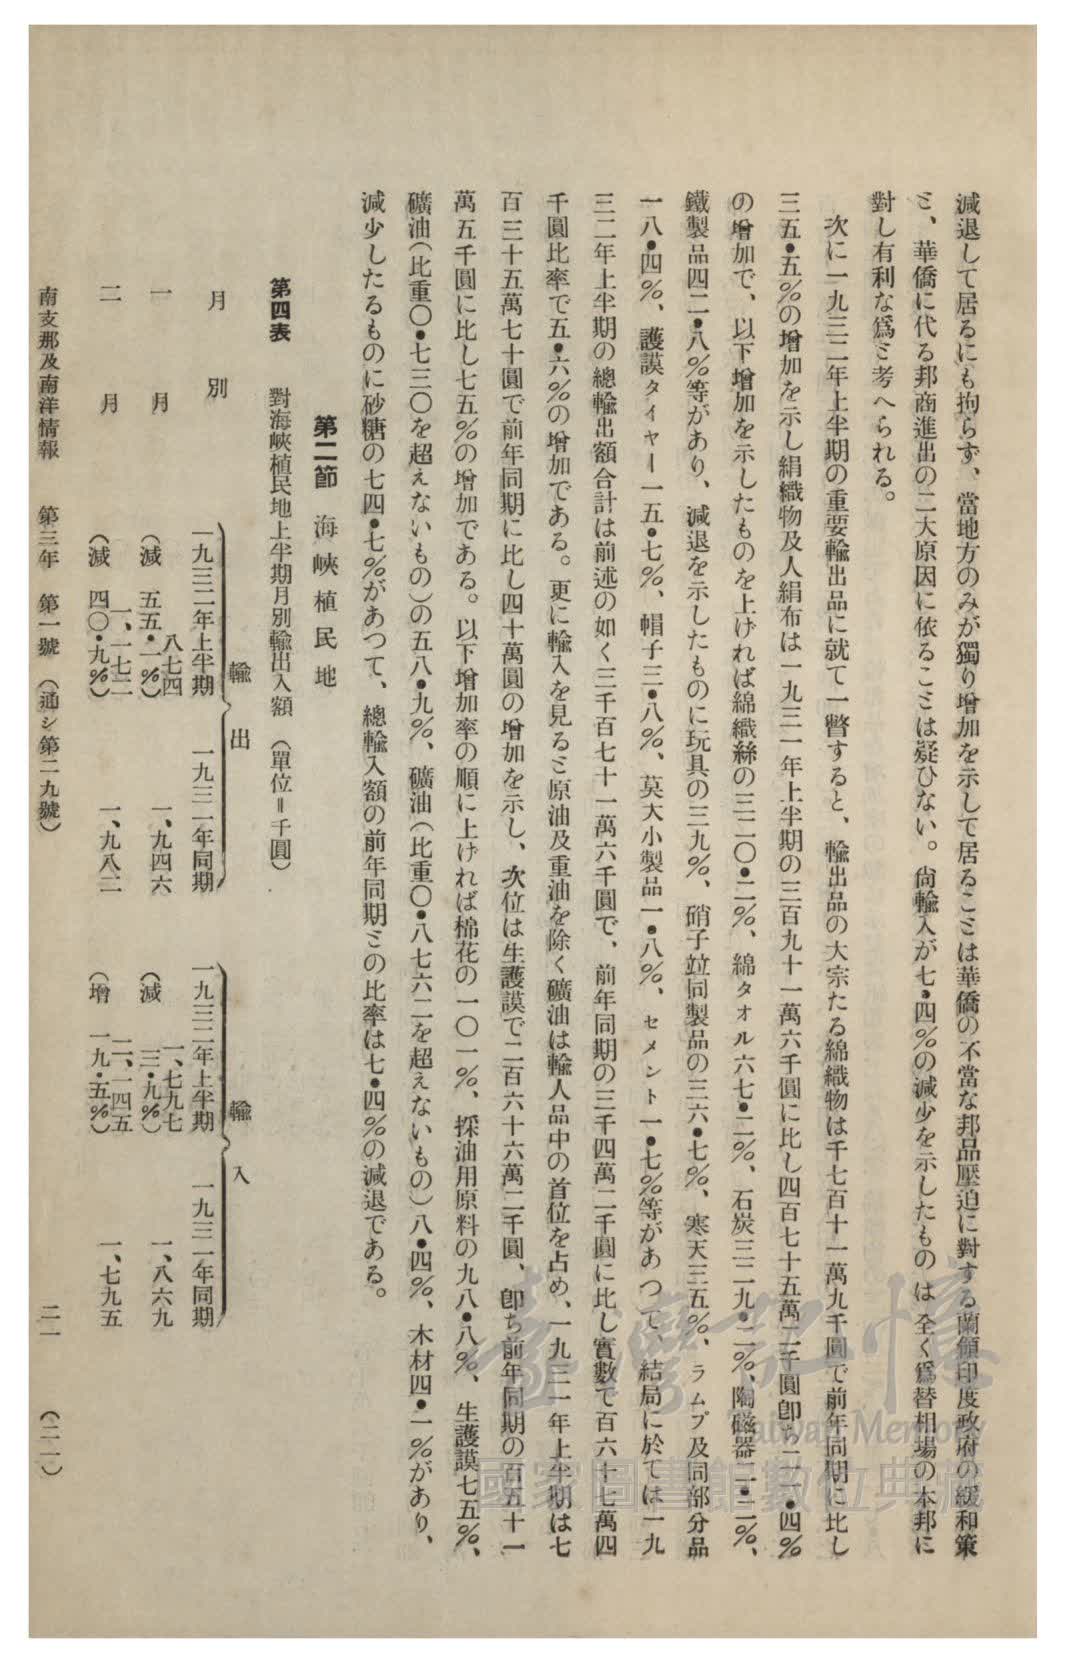 減退して居るにも拘らず、當地方のみが獨り增加を示して居るこミは華僑の不當な邦品壓迫に對する蘭領印度政府の緩和策
ミ、華僑に代る邦商進出の二大原因に依るこミは疑ひない。尙輸入が七・四%の減少を示したものは全く爲替相場の本邦に
對し有利な爲ミ考へられる。
次に一九三二年上半期の重要輸出品に就て一瞥すると、輸出品の大宗たる綿織物は千七百十一萬九千圓で前年同期に比し
三五・五%の增加を示し絹織物及人絹布は一九三一年上半期の三百九十一萬六千圓に比し四百七十五萬二千圓卽ち二一・四%
の增加で、以下增加を示したものを上げれば綿織絲の三二〇・二%、綿タオル六七・二%、石炭三二九・二%、陶磁器二・二%、
鐵製品四二・八%等があり、減退を示したものに玩具の三九%、硝子竝同製品の三六・七%、寒天三五%、ラムプ及同部分品
一八・四%、護謨タイヤー一五・七%、帽子三・八%、莫大小製品一・八%、セメント一・七%等があつて、結局に於ては一九
三二年上半期の總輸出額合計は前述の如く三千百七十一萬六千圓で、前年同期の三千四萬二千圓に比し實數て百六十七萬四
千圓比率で五・六%の增加である。更に輸入を見るミ原油及重油を除く礦油は輸入品中の首位を占め、一九三一年上半期は七
百三十五萬七十圓で前年同期に比し四十萬圓の增加を示し、次位は生護謨で二百六十六萬二千圓、卽ち前年同期の百五十一
萬五千圓に比し七五%の增加である。以下增加率の順に上げれば棉花の一〇一%、採油用原料の九八・八%、生護謨七五%、
礦油(比重〇・七三〇を超えないもの)の五八・九%、礦油(比重〇・八七六二を超えないもの)八・四%、木材四・一%があり、
減少したるものに砂糖の七四・七%があつて、總輸入額の前年同期ミの比率は七・四%の減退である。
第二節 海峽植民地
第四表 對海峽植民地上半期月別輸出入額 (單位=千圓)
輸出 輸入
月別 一九三二年上半期 一九三一年同期 一九三二年上半期 一九三一年同期
一月 八七四 一、九四六 一、七九七 一、八六九
(減 五五・一%) (減 三・九%)
二月 一、一七二 一、九八二 二、一四五 一、七九五
(減 四〇・九%) (增 一九・五%)
南支那及南洋情報 第三年 第一號 (通シ第二九號) 二一 (二一)
臺灣記憶
Taiwan Memory
國家圖書館數位典藏